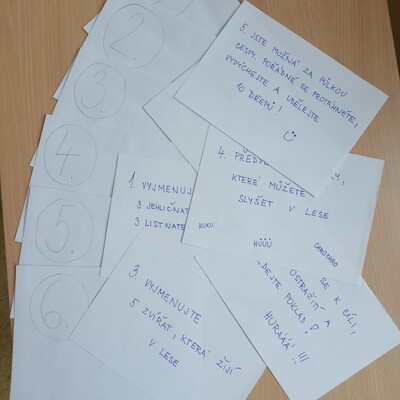 2.
3.
4.
5.
6.
5. JSTE MOŽNÁ ZA PŮLKOU
CESTY. POŘÁDNĚ SE PROTÁHNĚTE,
VYDÝCHEJTE A UDĚLEJTE
10 DŘEPŮ!
4.
KTERÉ MŮŽETE
SLYŠET V LESE
KUKU
HŮŮŮ
CHROCHRO
1. VYJMENUJ
3 JEHLIČNAT
3 LISTNATÉ
3. VYJMENUJTE
5 ZVÍŘAT, KTERÁ ŽIJÍ
V LESE
SE K CÍLI,
OSTRAŽITÍ A
DEJTE POKLAD!
HURÁÁÁ!!!